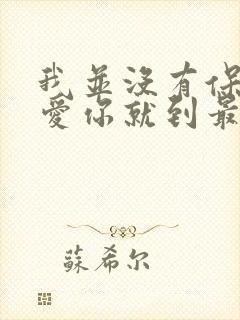 我並沒有保
愛你就到最
蘇希尔